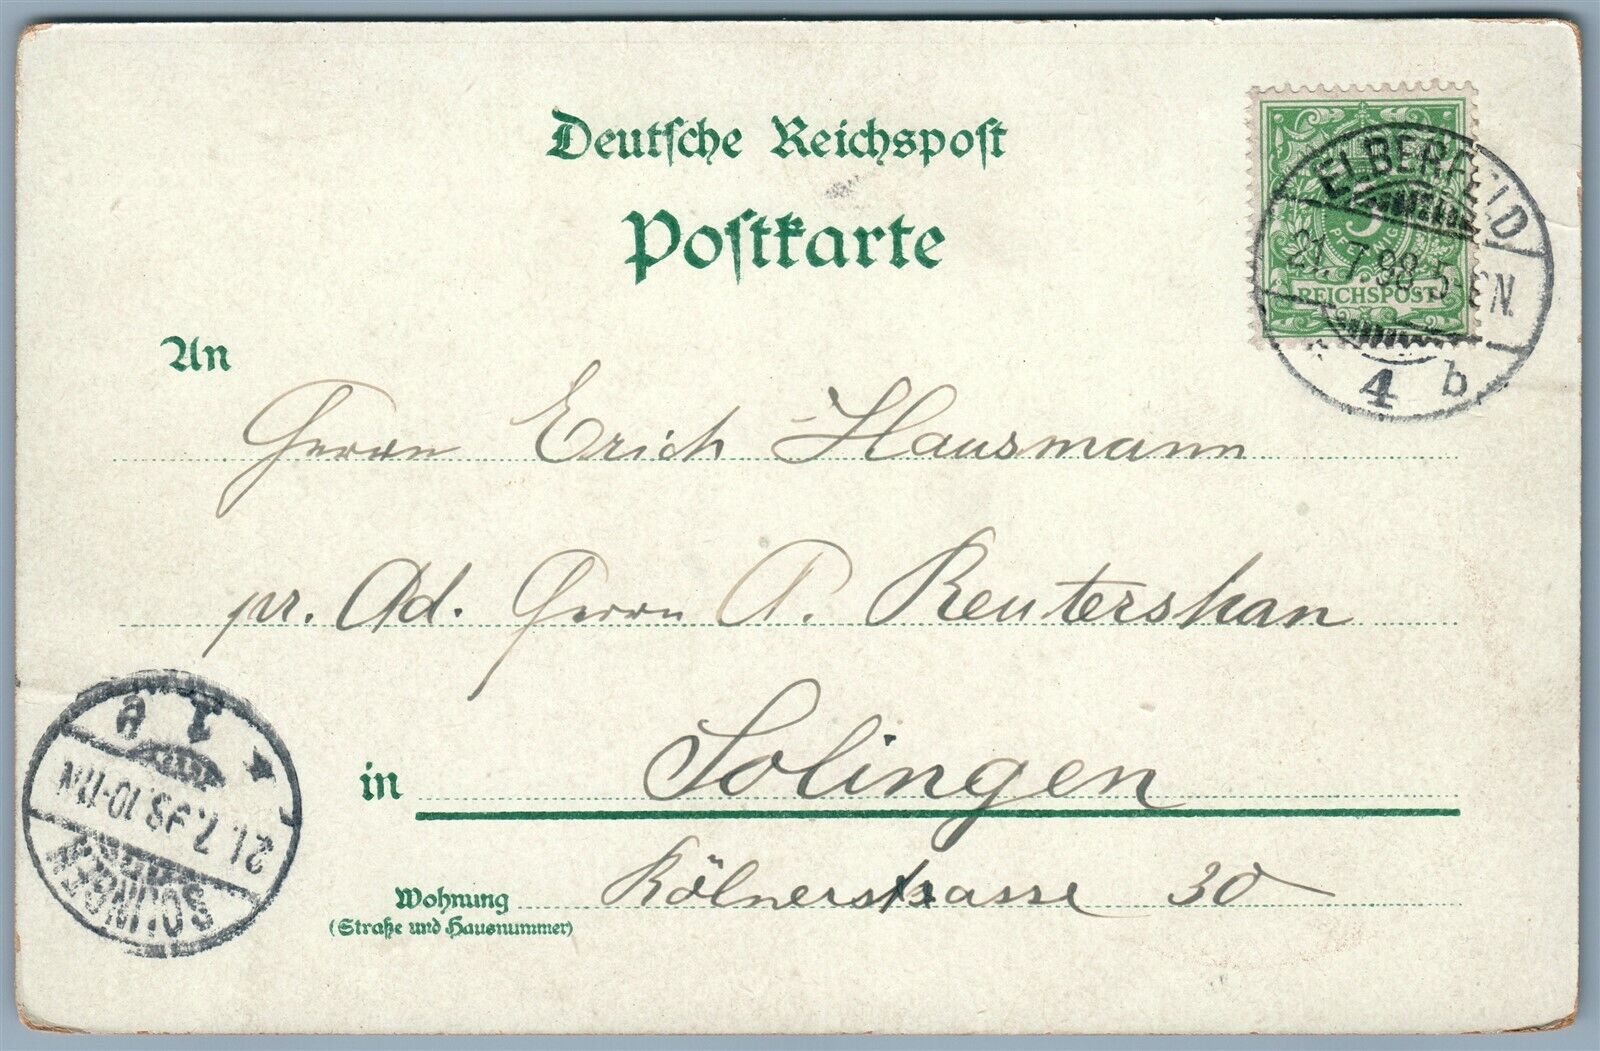 Deutsche Reichspost
Postkarte
ELBERFELD
21.7.98.5-6N.
4 b
5
PFENNIG
REICHSPOST
An
Herrn Erich Hausmann
pr. Ad. Herrn A. Reutershan
in Solingen
Wohnung Kölnerstrasse 30
(Straße und Hausnummer)
SOLINGEN
21.7.98.10-11N
* 1 e